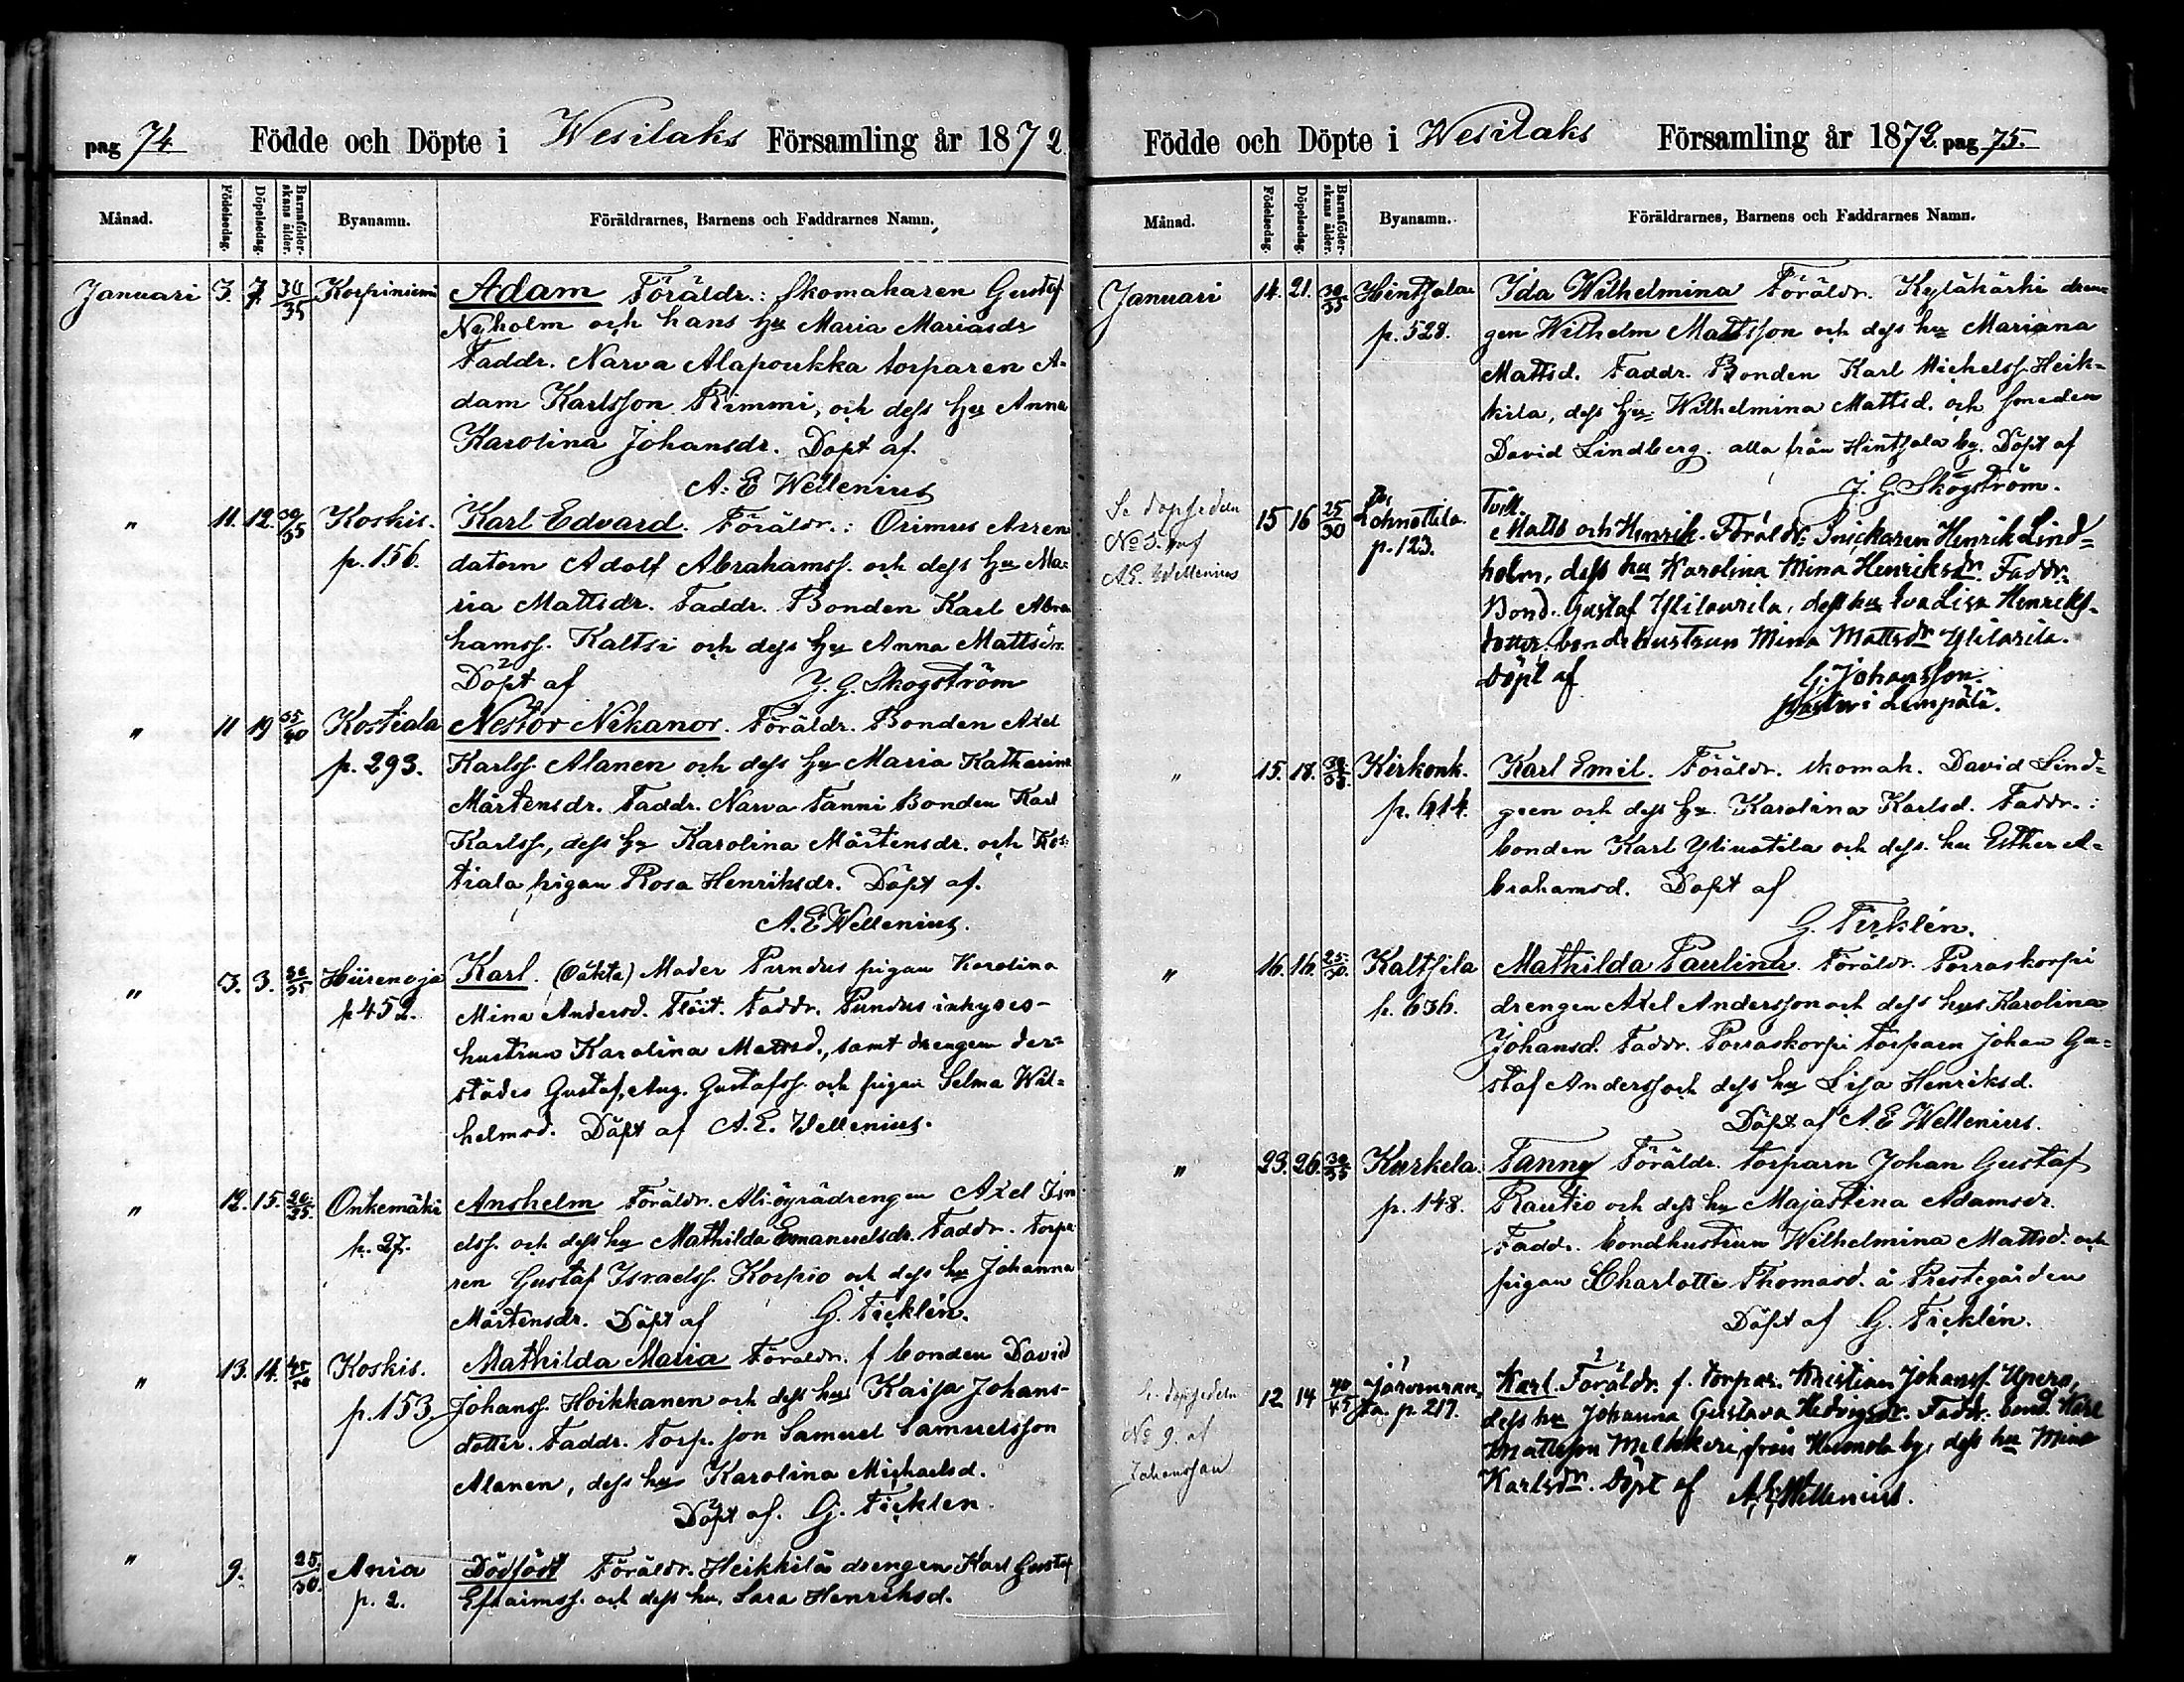 pag 74 Födde och Döpte i Wesilaks Församling år 1872.
Månad. Födelsedag. Döpelsedag. Barnaföderskans ålder. Byanamn. Föräldrarnes, Barnens och Faddrarnes Namn.
Januari 3. 7. 30/35 Korpiniemi Adam Föräldr.: Skomakaren Gustaf
Nyholm och hans hu Maria Mariasdr
Faddr. Narva Alapoukka torparen A-
dam Karlsson Rimmi, och dess hu Anna
Karolina Johansdr. Döpt af.
A. E Wellenius
" 11. 12. 30/35 Koskis. Karl Edvard. Föräldr.: Orimus Arren
p. 156. datorn Adolf Abrahamss. och dess hu Ma-
ria Mattsdr. Faddr. Bonden Karl Abra
hamss. Kaltsi och dess hu Anna Mattsdr.
Döpt af J. G. Skogström
" 11 19 35/40 Kostiala Nestor Nikanor. Föräldr. Bonden Axel
p. 293. Karlss. Alanen och dess hu Maria Katharina
Mårtensdr. Faddr. Narva Fanni Bonden Karl
Karlss, dess hu Karolina Mårtensdr. och Kos-
tiala pigan Rosa Henriksdr. Döpt af.
A. E Wellenius.
" 3. 3. 30/35 Hiirenoja Karl. (Oäkta) Moder Pundus pigan Karolina
p 452. Mina Andersd. Flöit. Faddr. Pundus inhyses-
hustrun Karolina Mattsd., samt drengen der-
städes Gustaf Aug. Gustafss. och pigan Selma Wil-
helmsd. Döpt af A. E. Wellenius.
" 12. 15. 20/25. Onkemäki Anshelm Föräldr. Ali-öyrädrengen Axel Ism
p. 27. elss. och dess hu Mathilda Emanuelsdr. Faddr. Torpa
ren Gustaf Israelss. Korpio och dess hu Johanna
Mårtensdr. Döpt af G. Ticklén.
" 13. 14. Koskis. Mathilda Maria Föräldr. f bonden David
p. 153. Johanss. Hoikkanen och dess hu Kaisa Johans-
dotter. Faddr. Torp. son Samuel Samuelsson
Alanen, dess hu Karolina Michaelsd.
Döpt af. G. Ticklen.
" 9. 25./30. Ania Dödfödt Föräldr. Heikkilä drengen Karl Gustaf
p. 2. Efraimss. och dess hu. Sara Henriksd.
Födde och Döpte i Wesilaks Församling år 1872. pag 75.
Månad. Födelsedag. Döpelsedag. Barnaföderskans ålder. Byanamn. Föräldrarnes, Barnens och Faddrarnes Namn.
Januari 14. 21. 30/35 Hintsala Ida Wilhelmina Föräldr. Kyläkärki dren
p. 528. gen Wilhelm Mattsson och dess hu Mariana
Mattsd. Faddr. Bonden Karl Michelss. Heik-
kila, dess hu. Wilhelmina Mattsd. och smeden
David Lindberg. alla från Hintsala by. Döpt af
J. G. Skogström.
Se dopsedeln 15 16 25/30 Tvill.
No 3. af p. 123. Matts och Henrik. Föräldr: Snickaren Henrik Lind-
A. E. Wellenius holm, dess hu Karolina Mina Henriksdr. Faddr.
Bond. Gustaf dess hu Eva Lisa Henriks-
dotter, bondehustrun Mina Mattsdr
Döpt af G. Johansson.
pastor i Lempälä.
" 15. 18. Kirkonk. Karl Emil. Föräldr. skomak. David Lind-
p. 614. gren och dess hu. Karolina Karlsd. Faddr.:
bonden Karl Yliuotila och dess. hu Esther A-
brahamsd. Döpt af
G. Ticklén.
" 16. 16. 25./30. Kaltsila Mathilda Paulina. Föräldr. Porraskorpi
p. 636. drengen Axel Andersson och dess hu Karolina
Johansd. Faddr. Porraskorpi torparn Johan Gu-
staf Anderss och dess hu Lisa Henriksd.
Döpt af A. E Wellenius.
" 23. 26. 30/35 Kurkela. Fanny Föräldr. torparn Johan Gustaf
p. 148. Rautio och dess hu Majastina Adamsdr.
Faddr. bondhustrun Wilhelmina Mattsd. och
pigan Charlotte Thomasd. å Prestegården
Döpt af G. Ticklén.
Se dopsedeln 12 14 40/45 Järvenran- Karl. Föräldr. f. torpar. Kristian Johanss. Upero,
No 9. af ta. p. 217. dess hu Johanna Gustava Hedvigsdr. Faddr. bond. Karl
Johansson Mattsson från by, dess hu Mina
Karlsdr. Döpt af A. E. Wellenius.